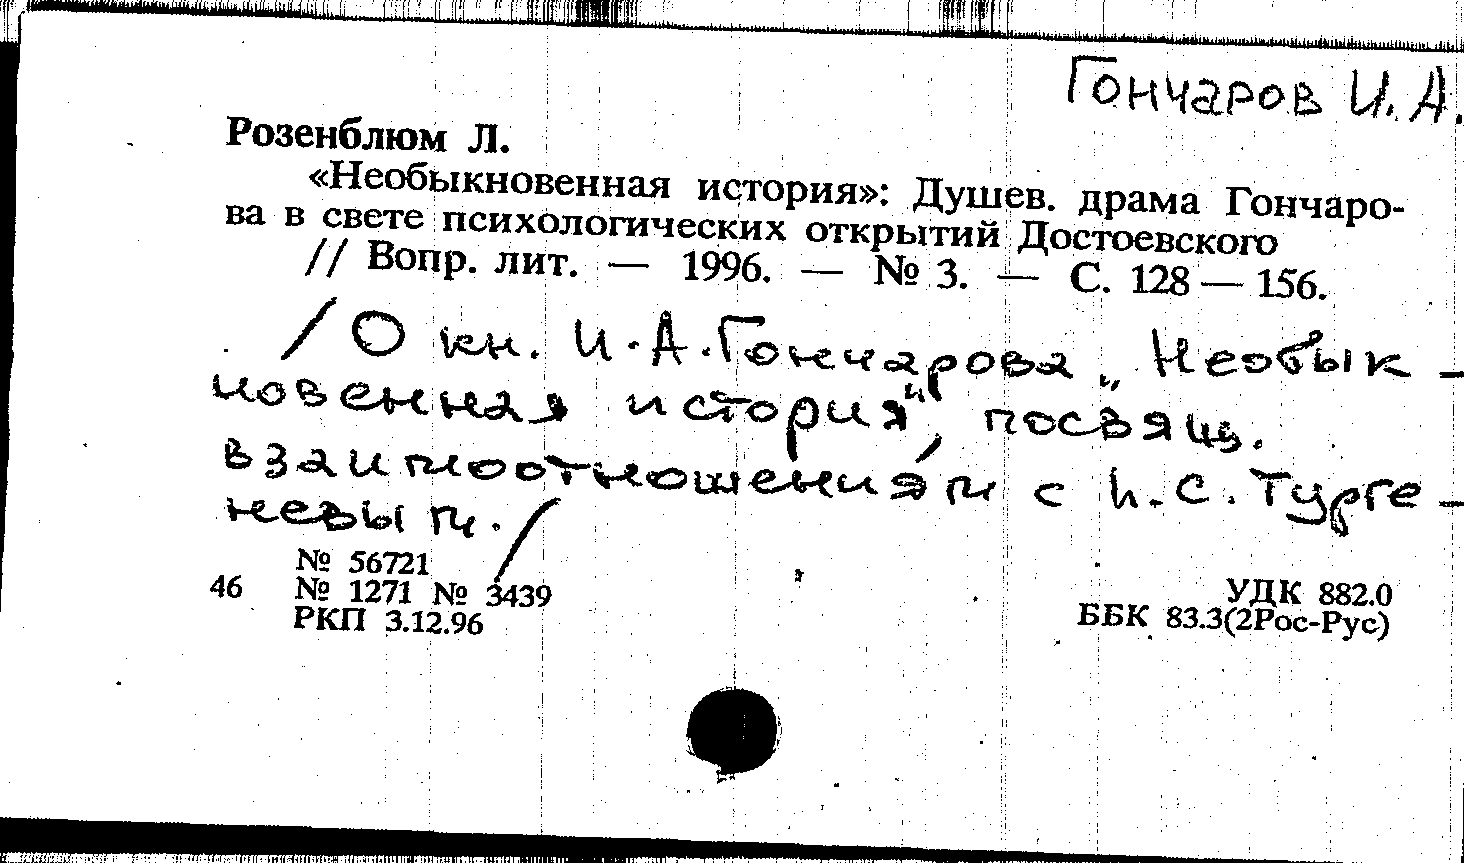 Гончаров И. А.
Розенблюм Л.
«Необыкновенная история»: Душев. драма Гончаро-
ва в свете психологических открытий Достоевского
// Вопр. лит. — 1996. — № 3. — С. 128 — 156.
/ О кн. И.А.Гончарова „Необык-
новенная история", посвящ.
взаимоотношениям с И.С.Турге-
невым. /
№ 56721
46 № 1271 № 3439
РКП 3.12.96
УДК 882.0
ББК 83.3(2Рос-Рус)